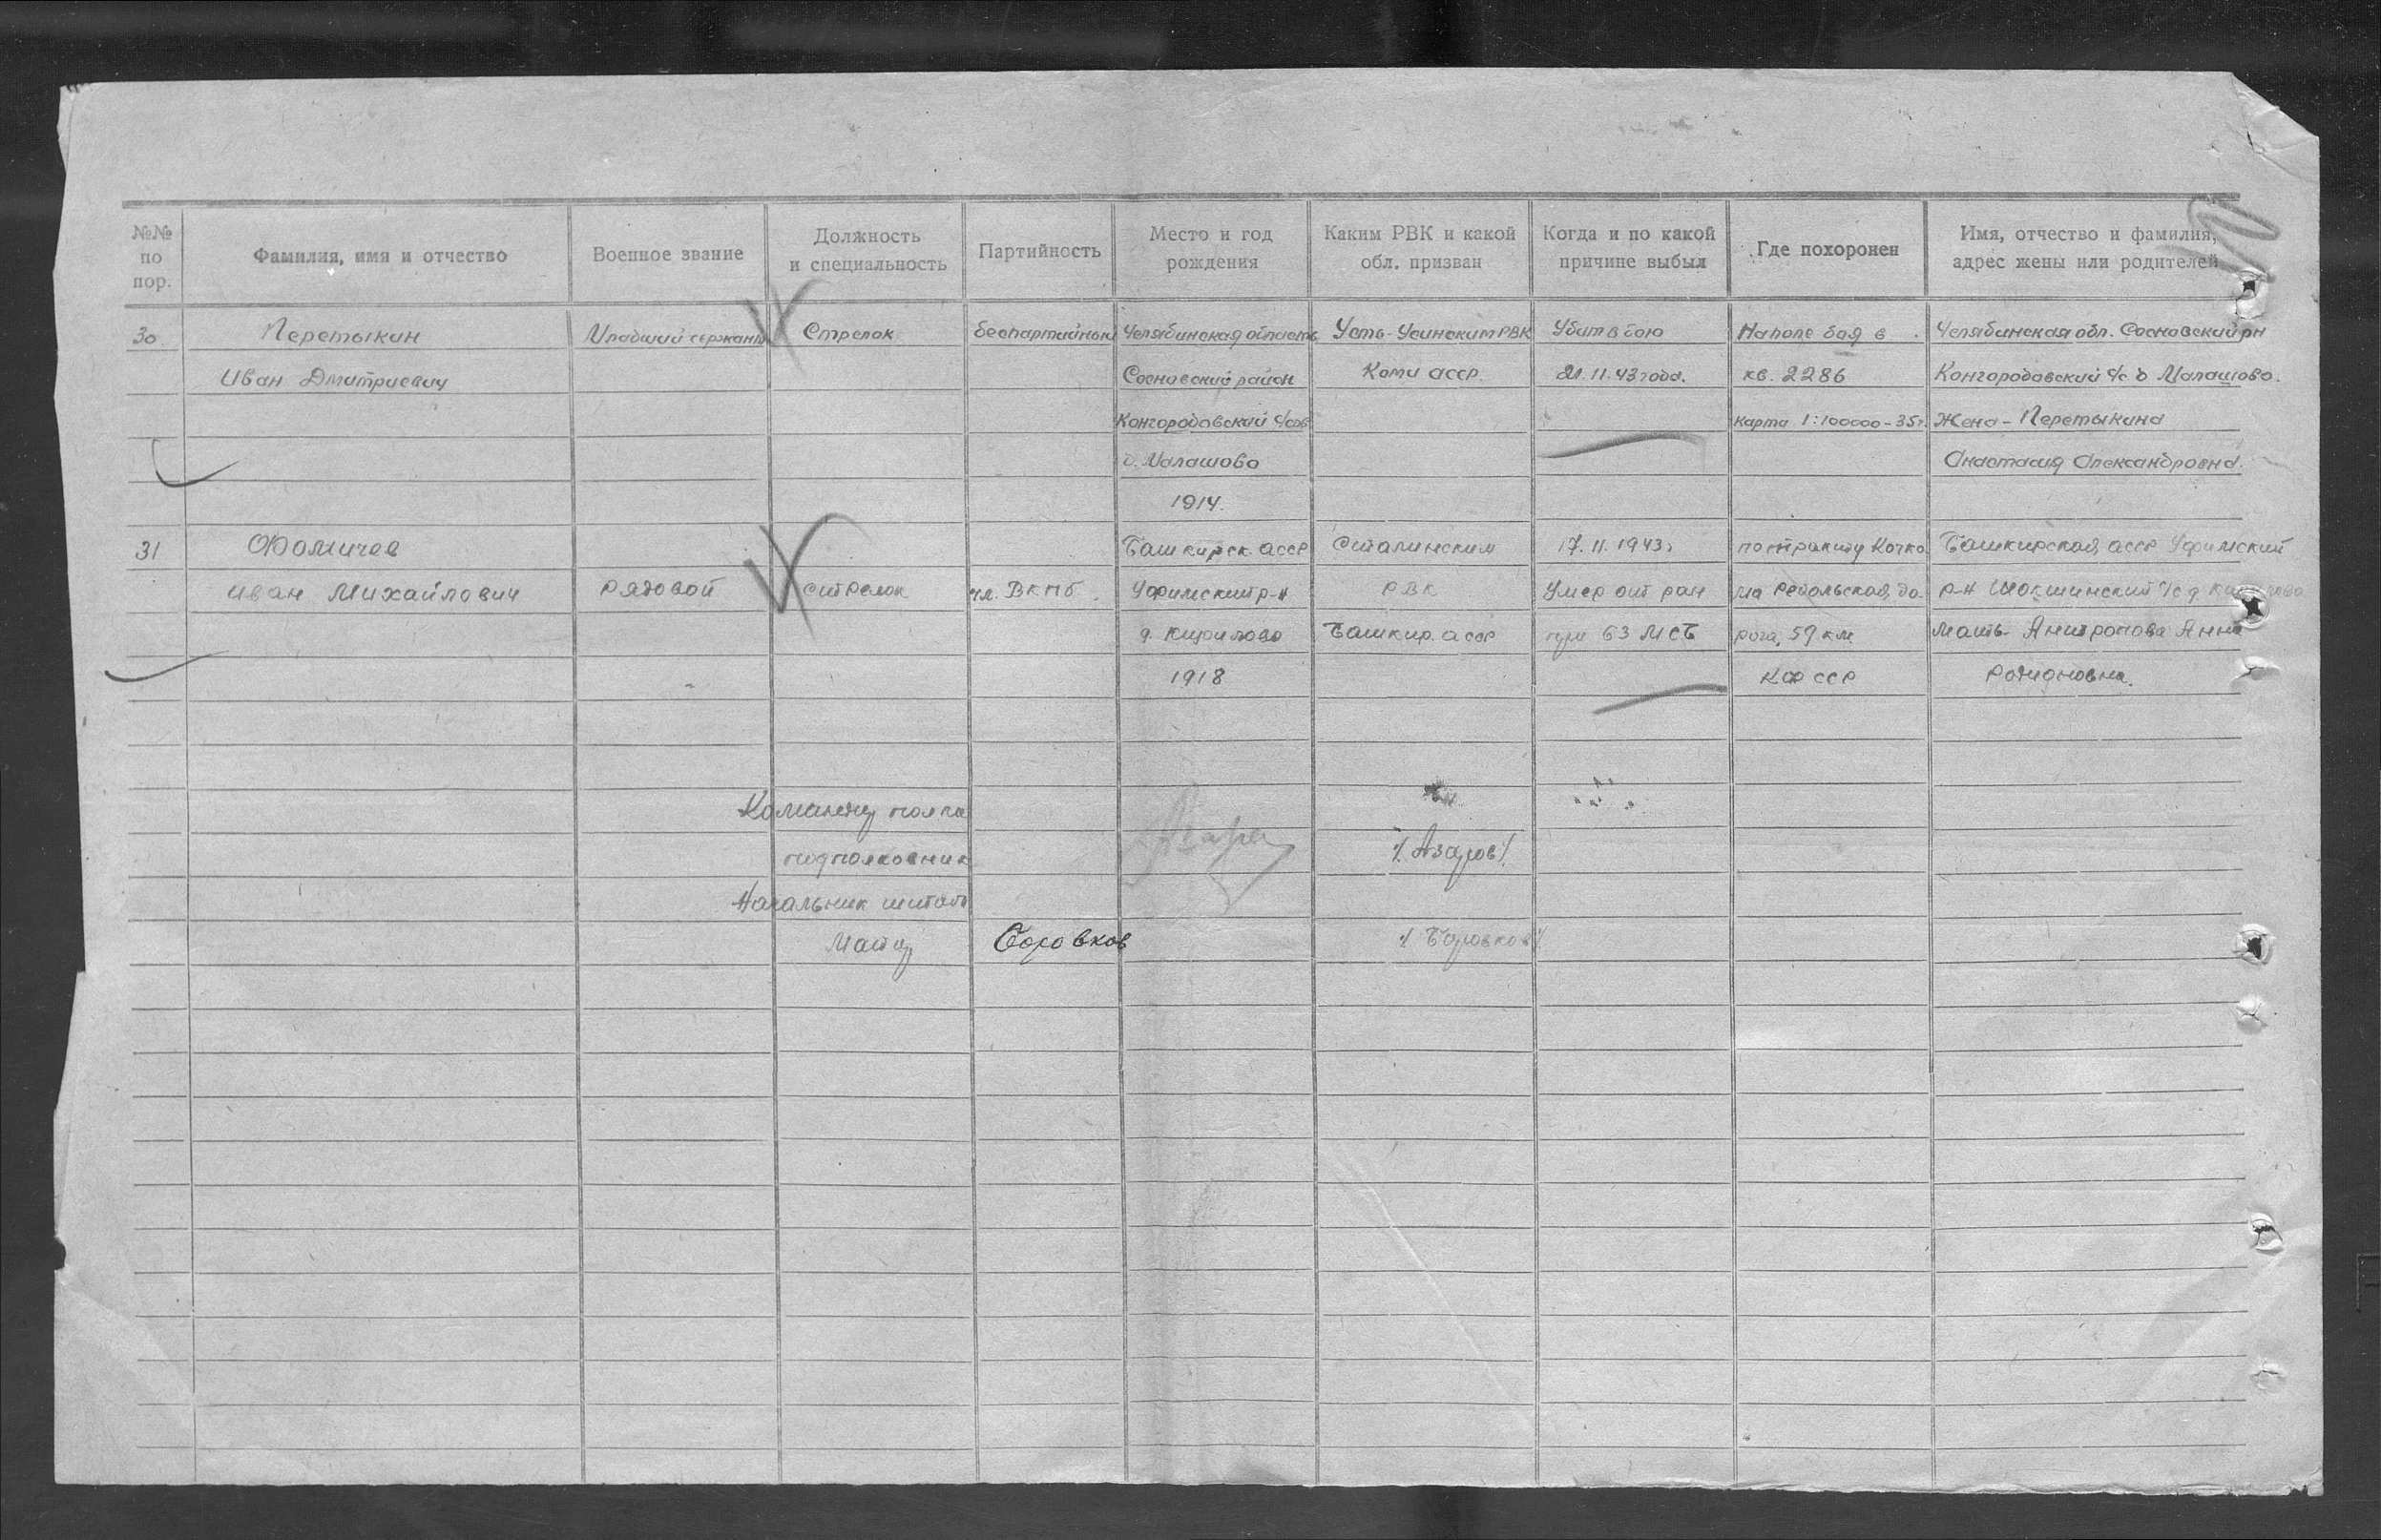 №№ по пор.
Фамилия, имя и отчество
Военное звание
Должность и специальность
Партийность
Место и год рождения
Каким РВК и какой обл. призван
Когда и по какой причине выбыл
Где похоронен
Имя, отчество и фамилия, адрес жены или родителей
30 Перетыкин Младший сержант Стрелок беспартийный Челябинская область Усть-Усинским РВК Убит в бою На поле боя в Челябинская обл. Сосновский рн
Иван Дмитриевич Сосновский район Коми асср. 21.11.43 года. кв. 2286 Конгородовский с/с д Малашово.
Конгородовский с/сов карта 1:100000-35г. Жена - Перетыкина
д. Малашово Анастасия Александровна.
1914.
31 Фомичев Башкирск. асср Сталинским 17.11.1943г по тракту Кочко Башкирская асср Уфимский
Иван Михайлович рядовой стрелок чл. ВКПб. Уфимский р-н РВК Умер от ран ма Ребольская, до р-н с/с д.
д. Башкир. асср при 63 МСБ рога, 59 км. Мать - Антропова Анна
1918 КФ ССР Родионовна.
Командир полка
подполковник /Азаров/.
Начальник штаба
Майор Боровков /Боровков/